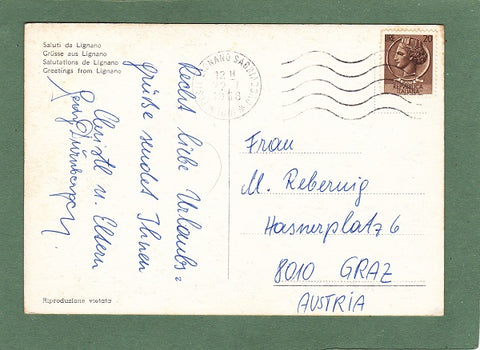 Saluti da Lignano
Grüsse aus Lignano
Salutations de Lignano
Greetings from Lignano
Recht liebe Urlaubs=
grüße sendet Ihnen
Christl u. Eltern
LIGNANO SABBIADORO
12 H
20
REPUBBLICA
ITALIANA
Frau
M. Rebernig
Hasnerplatz 6
8010 GRAZ
AUSTRIA
Riproduzione vietata